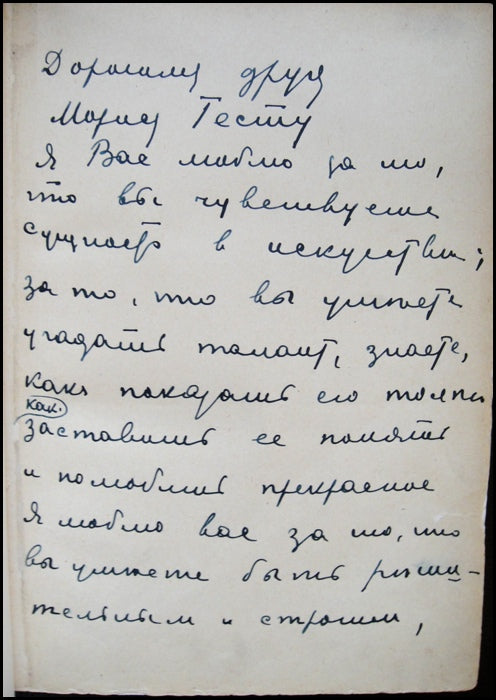 Дорогому другу
Морису Гесту
Я Вас люблю за то,
что вы чувствуете
сущность в искусствѣ;
за то, что вы умѣете
угадать талант, знаете,
какъ показать его толпѣ
как.
заставить ее понять
и полюбить прекрасное
Я люблю вас за то, что
вы умѣете быть рѣши-
тельным и строгим,